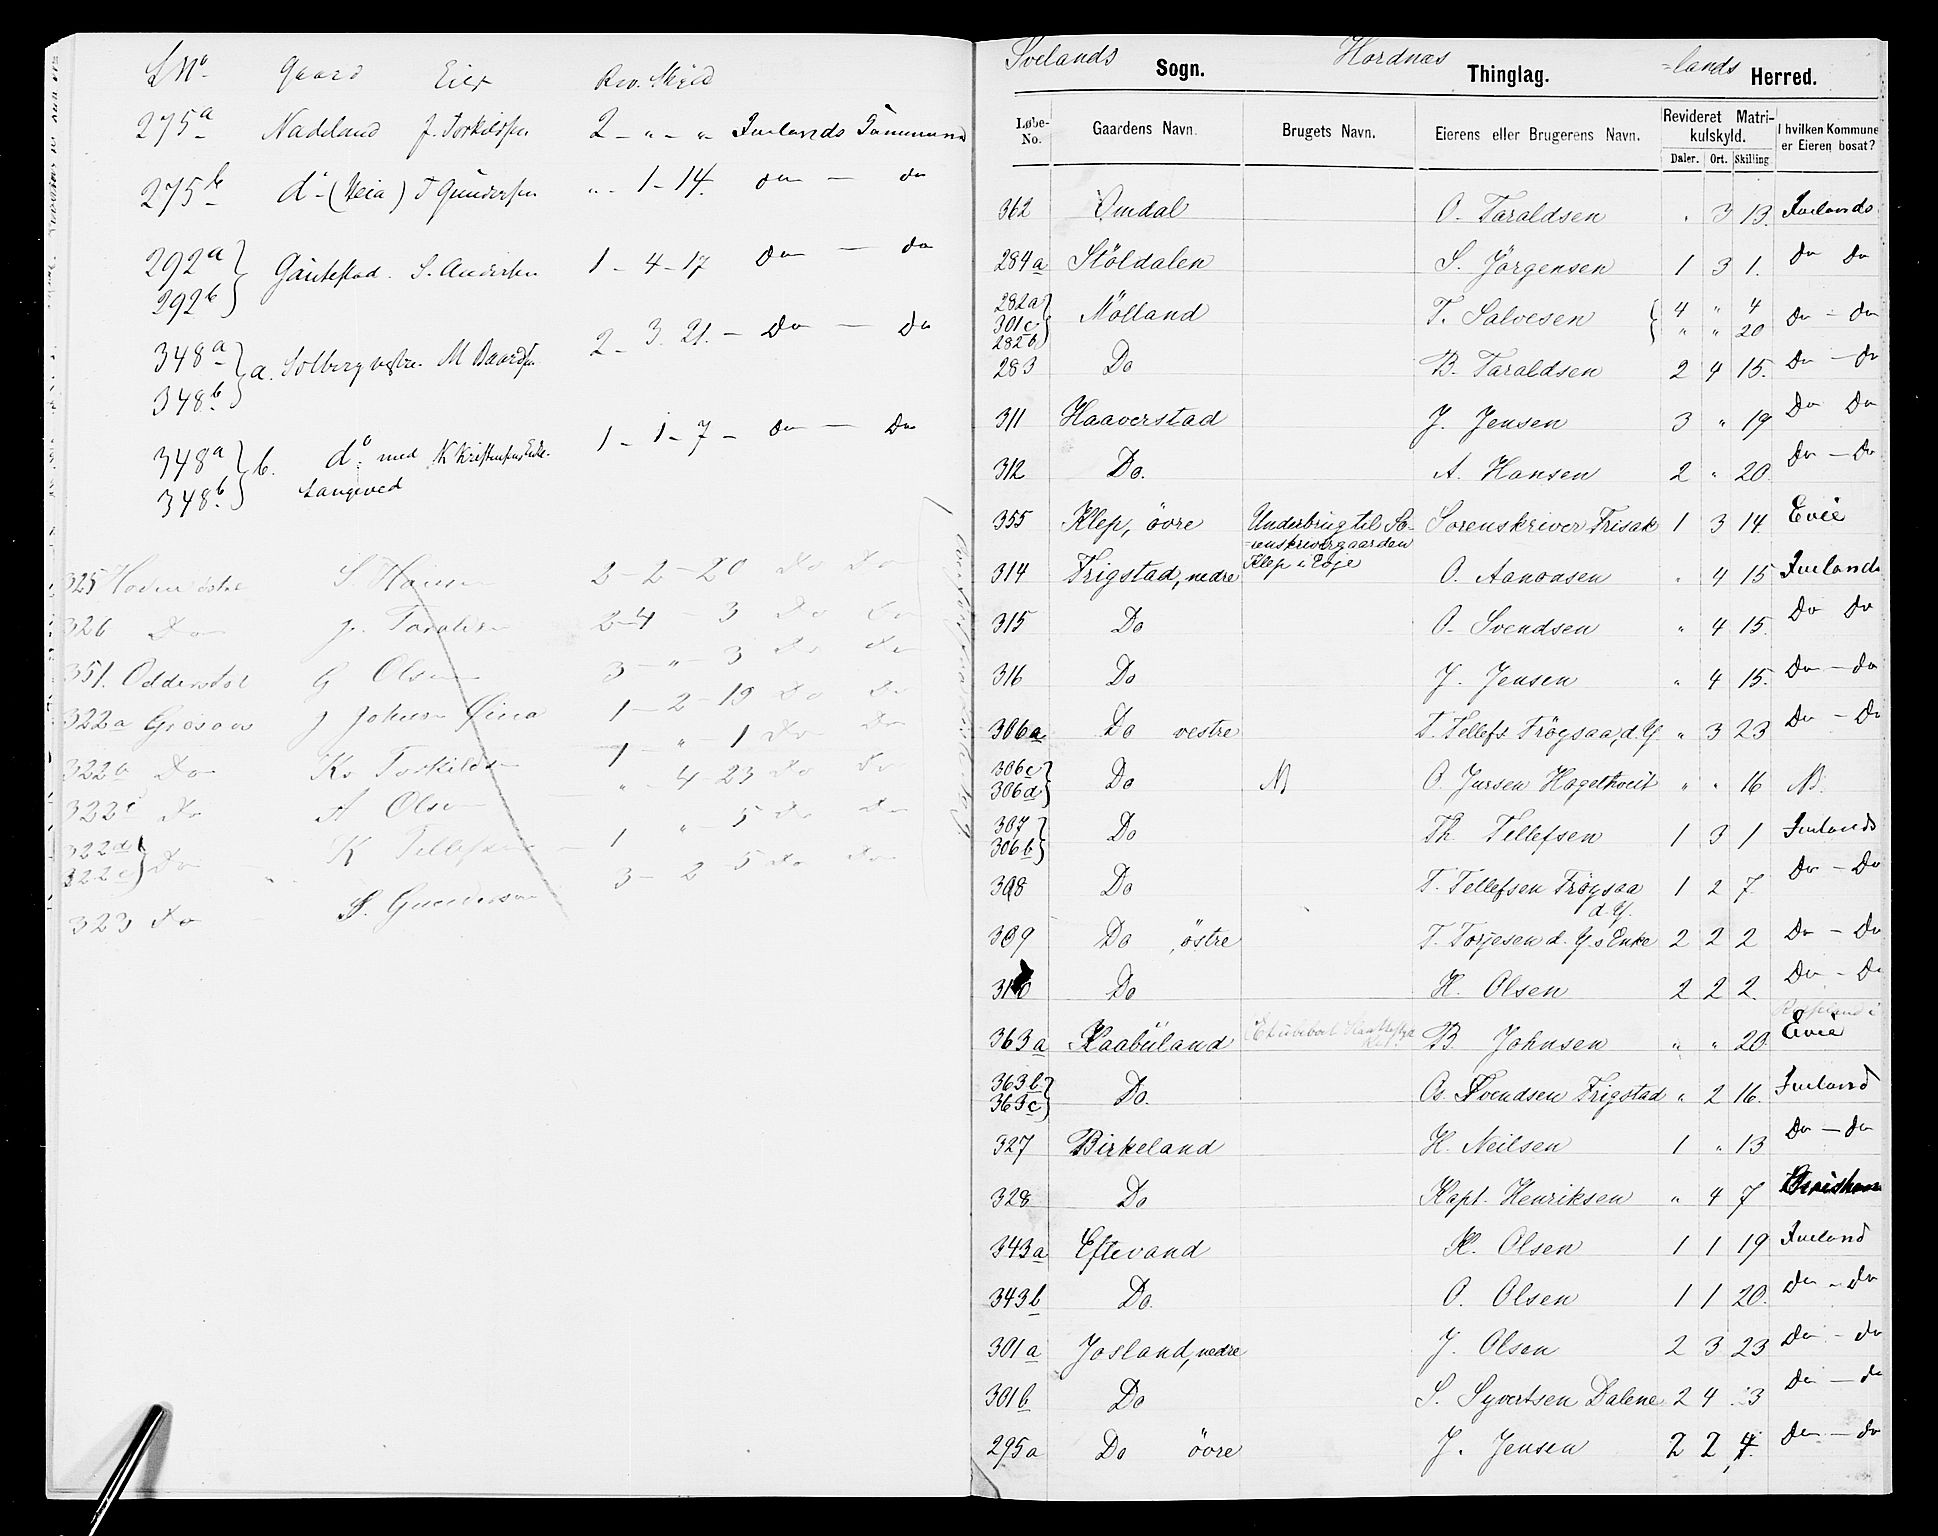 L No. Gaard Eier Rev. Skyld
275a Nadeland J. Torkildsen 2 - " - "
275b do - (Heia) T Gundersen " - 1 - 14. do - do
292a } Gautestad. S. Andersen 1 - 4 - 17 do - do
292b
348a } a. Solberg vestre. M Baardsen 2 - 3. 21. - Do - Do
348b.
348a } b. do. med K Kristensens Enke. 1 - 1 - 7 - do - Do
348b. Langeved
325 S. Hansen 2 - 2 - 20 Do Do
326 Do J. Taraldsen 2 - 4 - 3 Do Do
351. Odderstøl G Olsen 3 - " - 3 Do Do
322a Grosaas J Johnsen 1 - 2 - 19 Do Do
322b Do Kr Torkildsen 1 - " - 1 Do Do
322c Do A Olsen " - 4 - 23 Do Do
322d } Do K Tellefsen 1 " - 5 Do Do
322e
323 Do S. Gundersen 3 - 2 - 5 Do Do
Ivelands Sogn. Hordnæs Thinglag. =lands Herred.
Løbe-No. Gaardens Navn. Brugets Navn. Eierens eller Brugerens Navn. Revideret Matrikulskyld. I hvilken Kommune er Eieren bosat?
Daler. Ort. Skilling.
362 Omdal O. Taraldsen " 3 13. Ivelands
284a Stöldalen S. Jörgensen 1 3 1. Do Do
282a } Mölland T. Salvesen { 4 " 4 Do - Do
301c " " 20
282b
283 Do B. Taraldsen 2 4 15. Do - Do
311 Haaverstad J. Jensen 3 " 19 Do Do
312 Do. A. Hansen 2 " 20. Do - Do
355 Klep, övre Underbrug til So- Sorenskriver Frisak 1 3 14. Evie
=renskrivergaarden
Klep i Evje
314 Frigstad, nedre O. Aanonsen " 4 15 Iveland
315 Do O. Svendsen " 4 15. Do Do
316 Do J. Jensen " 4 15. Do - Do
306a Do vestre T. Tellefs. Frögsaa, d. Y " 3 23 Do - Do
306c } Do N O. Jursen Hagelthveit " " 16 N.
306d
307 } Do Th Tellefsen 1 3 1 Ivelands
306b
308 Do T. Tellefsen Frögsaa 1 2 7. Do - Do
d. Y.
309 Do , östre T. Torjesen d. Y.s Enke 2 2 2 Do - Do
310 Do H. Olsen 2 2 2. Do - Do
363a Kaabuland B. Johnsen " " 20. Evie
363b } Do. Os. Svendsen Frigstad " 2 16. Iveland
363c
327 Birkeland H. Neilsen 1 " 13 Do - Do
328 Do Kapt. Henriksen " 4 7
343a Eftevand K. Olsen 1 1 19 Iveland
343b Do. O. Olsen 1 1 20. do - Do
301a Josland, nedre J. Olsen 2 3 23 Do - do
301b Do S. Syvertsen Dalene 2 4 3 Do - do
295a Do övre J. Jensen 2 2 4. Do - do